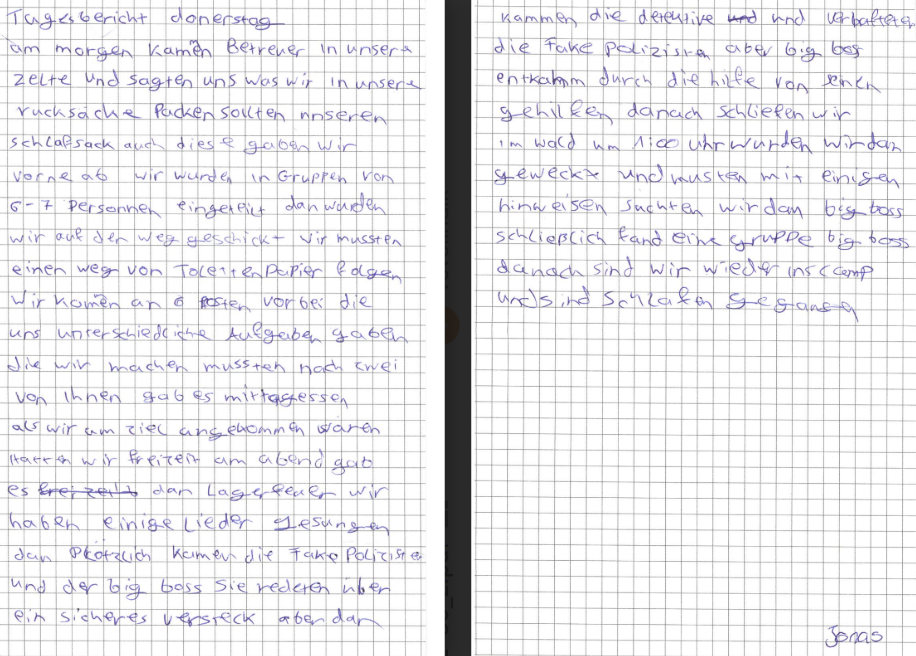 Tagesbericht donerstag
am morgen kamen Betreuer in unsere
zelte und sagten uns was wir in unsere
rucksäche Packen sollten unseren
schlafsack auch diese gaben wir
vorne ab wir wurden in Gruppen von
6-7 Personnen eingeteilt dan wurden
wir auf den weg geschickt wir mussten
einen weg von Toletten Papier folgen
wir kamen an 6 Posten vorbei die
uns unterschiedliche Aufgaben gaben
die wir machen mussten nach zwei
von ihnen gab es mittagessen
als wir am ziel angekommen waren
hatten wir freizeit am abend gab
es dan Lagerfeuer wir
haben einige Lieder gesungen
dan Plötzlich kamen die Fake Poliziste
und der big boss Sie redeten über
ein sicheres versteck aber dan
kammen die detektive und und verhafteten
die Fake Polizisten aber big boss
entkamm durch die hilfe von seinen
gehilfen danach schliefen wir
im wald um 1:00 uhr wurden wir dan
geweckt und musten mit einigen
hinweisen suchten wir dan big boss
schlieẞlich fand eine gruppe big boss
danach sind wir wieder ins camp
und sind schlafen gegangen
Jonas